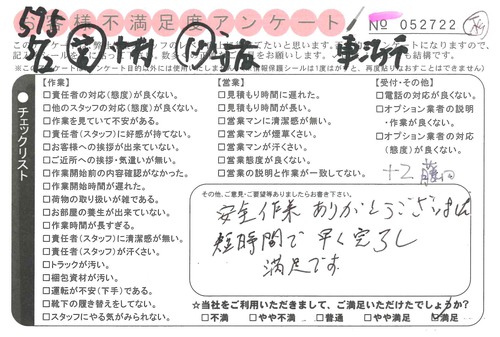 お客様不満足度アンケート
No 052722
575
【作業】
□責任者の対応(態度)が良くない。
□他のスタッフの対応(態度)が良くない。
□作業を見ていて不安がある。
□責任者(スタッフ)に好感が持てない。
□お客様への挨拶が出来ていない。
□ご近所への挨拶・気遣いが無い。
□作業開始前の内容確認がなかった。
□作業開始時間が遅れた。
□荷物の取り扱いが雑である。
□お部屋の養生が出来ていない。
□作業時間が長すぎる。
□責任者(スタッフ)に清潔感が無い。
□責任者(スタッフ)が汗くさい。
□トラックが汚い。
□梱包資材が汚い。
□運転が不安(下手)である。
□靴下の履き替えをしてない。
□スタッフにやる気がみられない。
【営業】
□見積もり時間に遅れた。
□見積もり時間が長い。
□営業マンに清潔感が無い。
□営業マンが煙草くさい。
□営業マンが汗くさい。
□営業態度が良くない。
□営業の説明と作業が一致してない。
【受付・その他】
□電話の対応が良くない。
□オプション業者の説明
・作業が良くない。
□オプション業者の対応
(態度)が良くない。
チェックリスト
その他、ご意見・ご要望等ありましたらお書き下さい。
安全作業 ありがとうございました
短時間で 早く完了し
満足です
☆当社をご利用いただきまして、ご満足いただけたでしょうか?
□不満 □やや不満 □普通 □やや満足 □満足